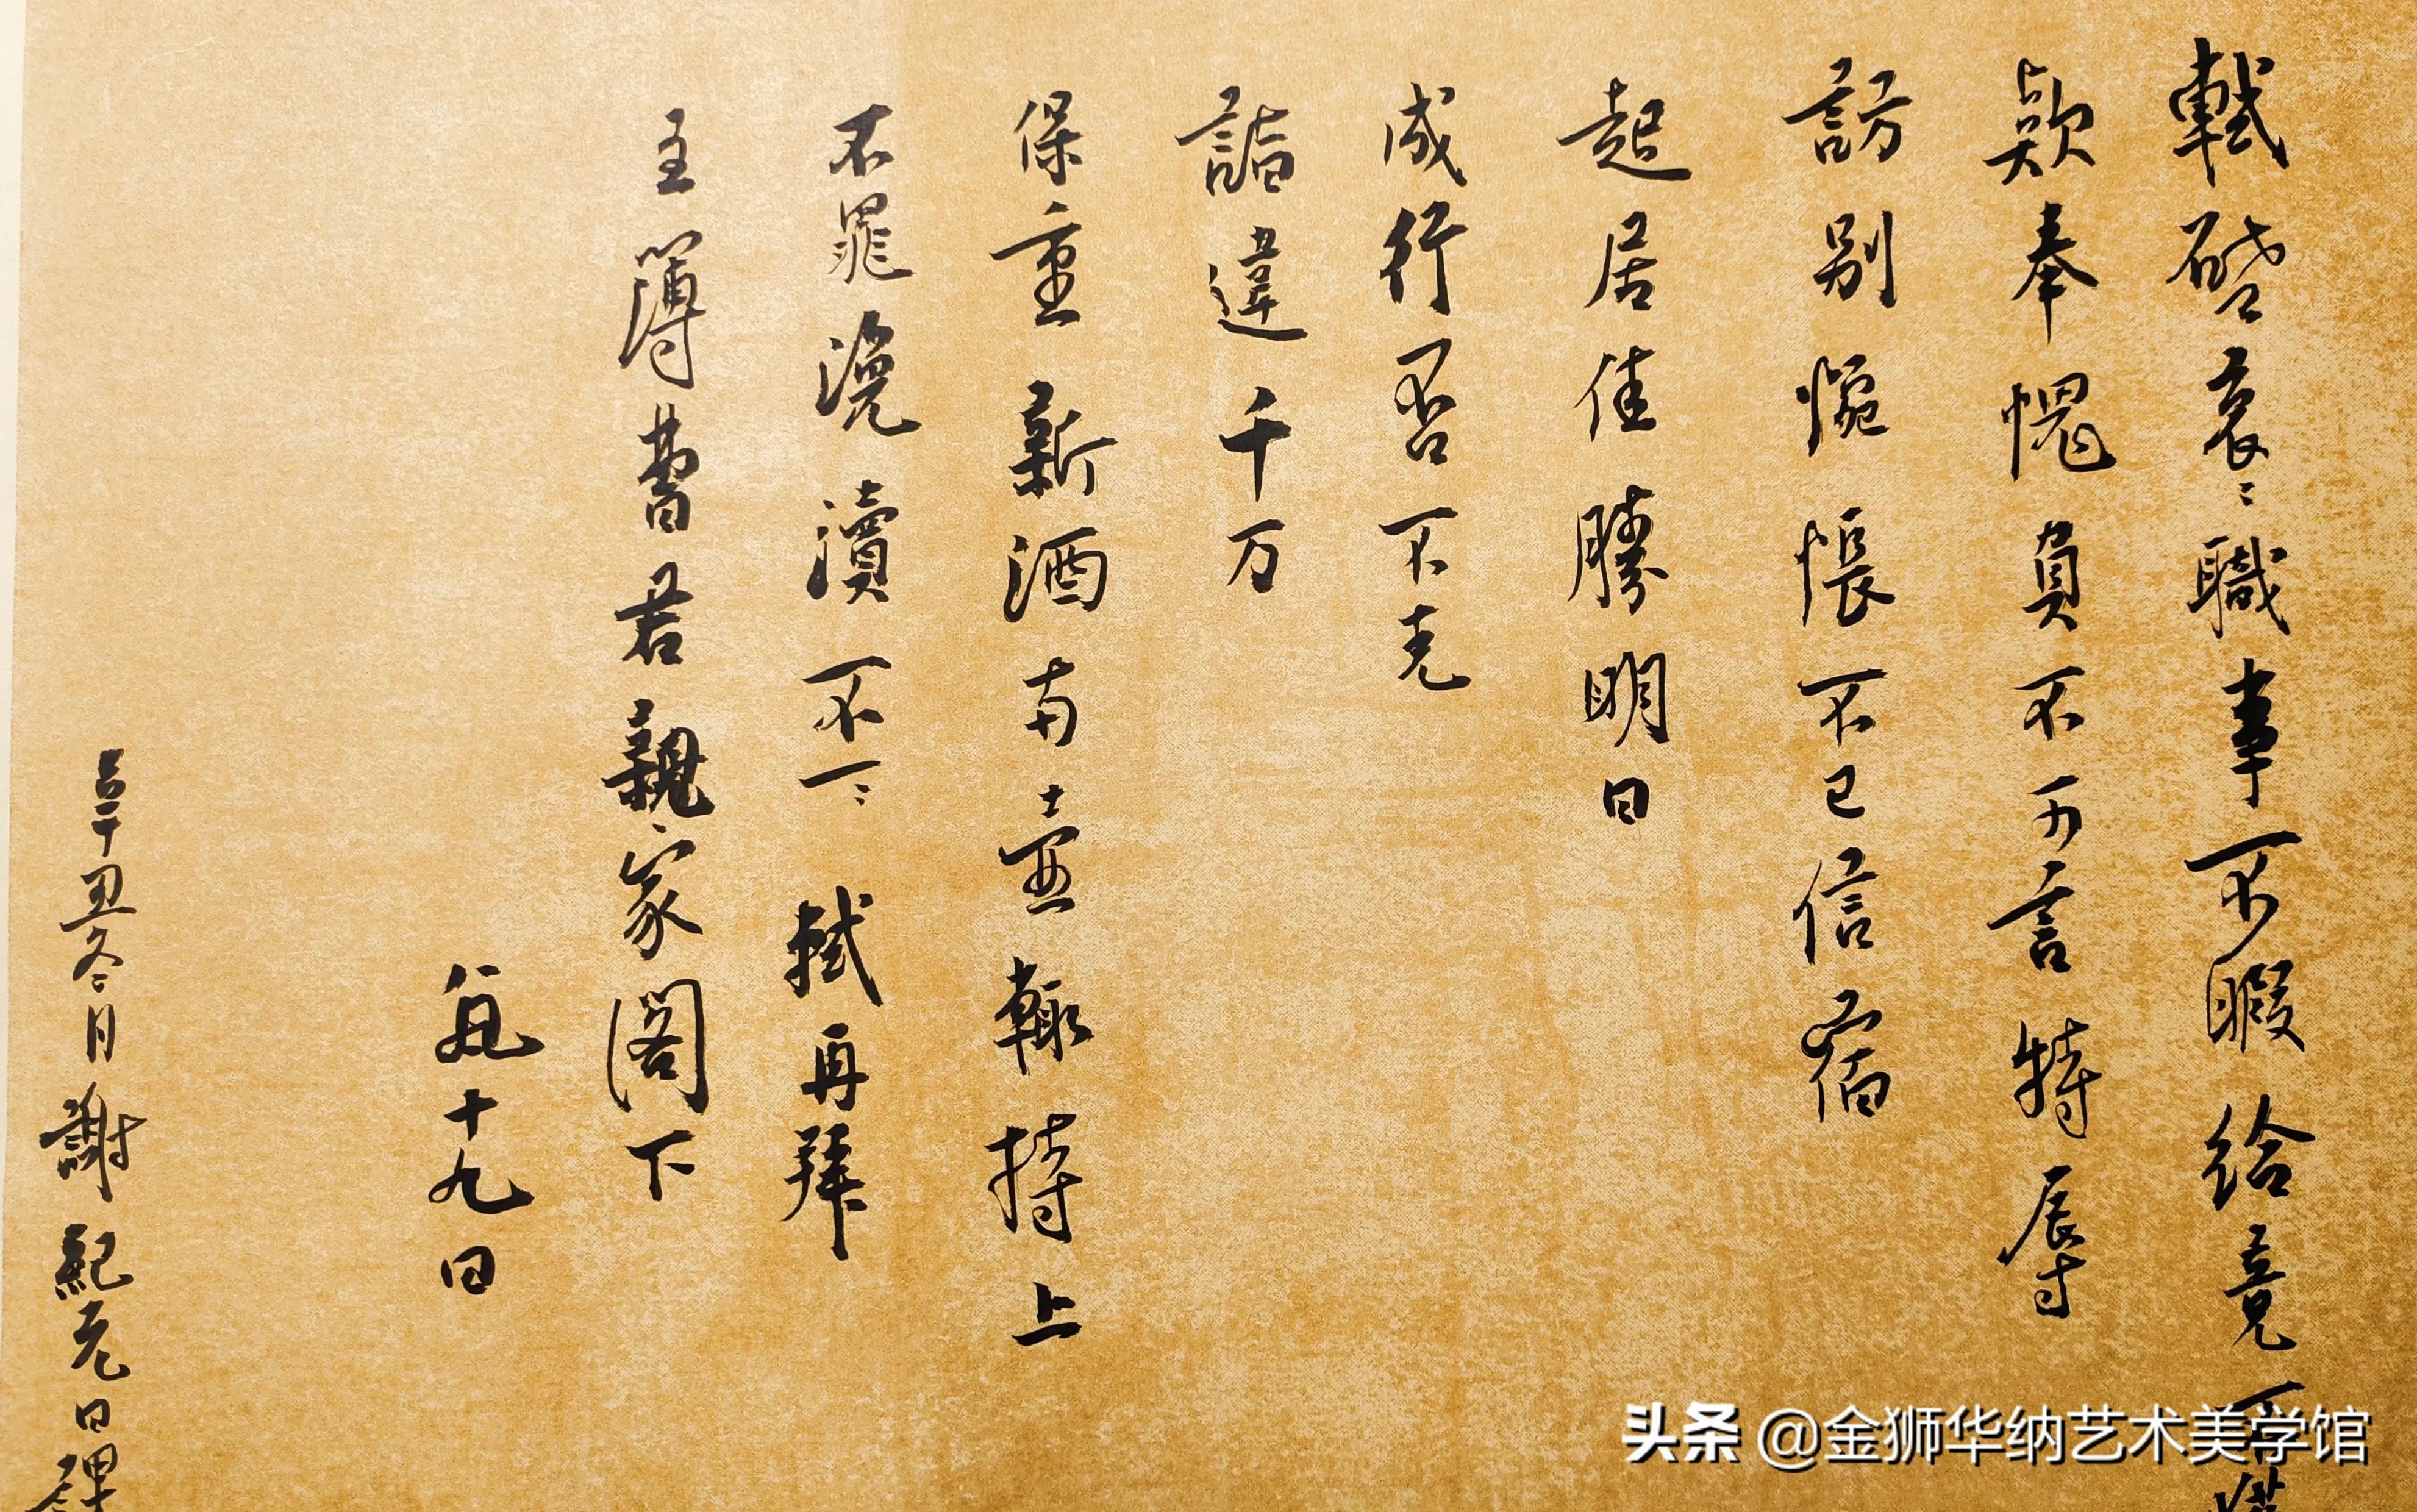 軾啓衮〻職事不暇給竟不
款奉愧負不可言特辱
訪別惋悵不已信宿
起居佳勝明日
成行否不克
詣違千万
保重新酒两壺輒持上
不罪浼瀆不一〻軾再拜
主簿曹君親家閣下
八月十九日
辛丑冬月謝紀元日課
头条 @金狮华纳艺术美学馆